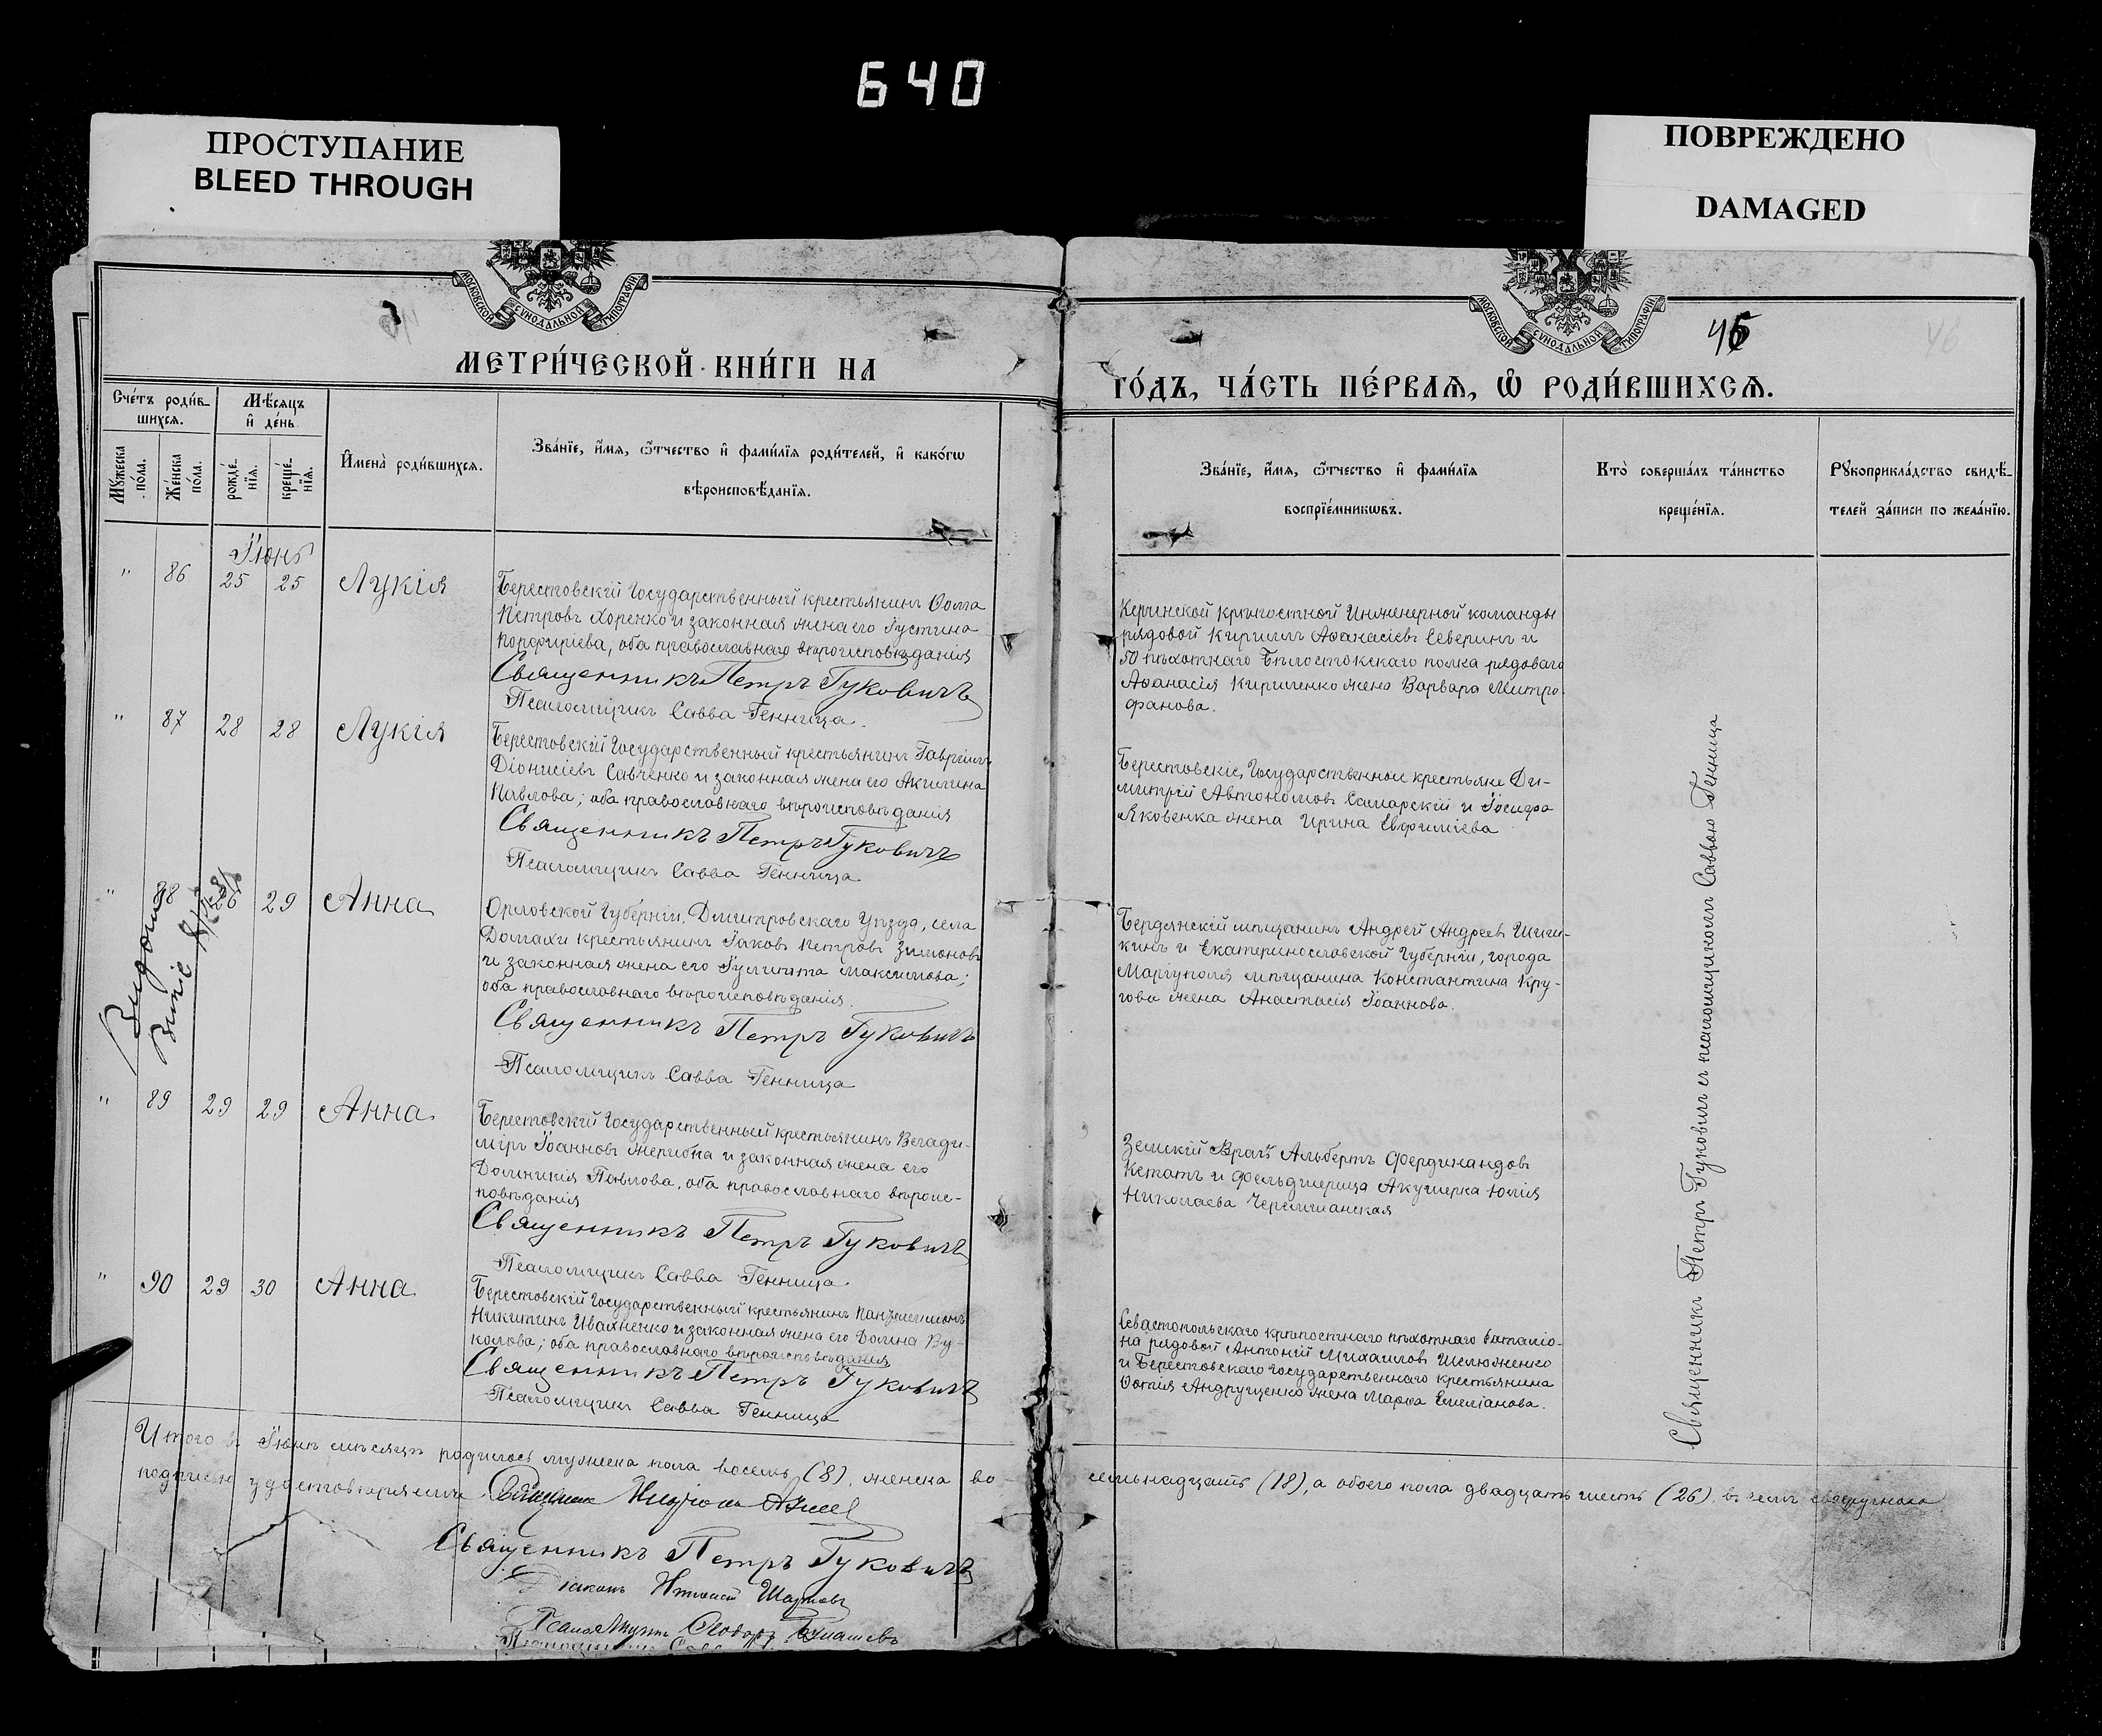 640
ПРОСТУПАНИЕ
BLEED THROUGH
ПОВРЕЖДЕНО
DAMAGED
МОСКОВСКОЙ СѴНОДАЛЬНОЙ ТИПОГРАФІИ
МОСКОВСКОЙ СѴНОДАЛЬНОЙ ТИПОГРАФІИ
46
МЕТРИ́ЧЕСКОЙ КНИ́ГИ НА
ГО́ДЪ, ЧА́СТЬ ПЕ́РВАѦ, Ѡ҆ РОДИ́ВШИХСѦ.
Сче́тъ роди́в-
шихсѧ.
Мѣ́сѧцъ
и҆ де́нь
Мꙋ́жеска
по́ла.
Же́нска
по́ла.
рожде́-
нїѧ.
креще́-
нїѧ.
И҆мена̀ роди́вшихсѧ.
Зва́нїе, и҆́мѧ, ѻ҆́тчество и҆ фами́лїѧ роди́телей, и҆ како́гѡ
вѣроисповѣ́данїѧ.
Зва́нїе, и҆́мѧ, ѻ҆́тчество и҆ фами́лїѧ
воспрїе́мникѡвъ.
Кто̀ соверша́лъ та́инство
креще́нїѧ.
Рꙋкоприкла́дство свидѣ́-
телей за́писи по жела́нїю.
Іюнь
" 86 25 25 Лукія
Берестовскій Государственный крестьянинъ Ѳома
Петровъ Хоренко и законная жена его Іустина
Порфиріева, оба православнаго вѣроисповѣданія
Священникъ Петръ Гуковичъ
Псаломщикъ Савва Генница.
Керченской крѣпостной Инженерной команды
рядовой Кириллъ Аѳанасіевъ Северинъ и
50 пѣхотнаго Бѣлостокскаго полка рядоваго
Аѳанасія Кириченко жена Варвара Митро-
фанова.
" 87 28 28 Лукія
Берестовскій Государственный крестьянинъ Гавріилъ
Діонисіевъ Савченко и законная жена его Акилина
Павлова; оба православнаго вѣроисповѣданія
Священникъ Петръ Гуковичъ
Псаломщикъ Савва Генница
Берестовскіе, Государственные крестьяне Ди-
митрій Автономовъ Самарскій и Іосифа
Яковенка жена Ирина Евфиміева
" 88 26 29 Анна
Орловской Губерніи, Дмитровскаго Уѣзда, села
Домахи крестьянинъ Іаковъ Петровъ Зимоновъ
и законная жена его Іулитта Максимова;
оба православнаго вѣроисповѣданія.
Священникъ Петръ Гуковичъ
Псаломщикъ Савва Генница
Бердянскій мѣщанинъ Андрей Андреев
кинъ и Екатеринославской Губерніи, города
Маріуполя мѣщанина Константина Кру-
гова жена Анастасія Іоаннова.
" 89 29 29 Анна
Берестовскій Государственный крестьянинъ Влади-
міръ Іоанновъ и законная жена его
Домникія Павлова, оба православнаго вѣроис-
повѣданія
Священникъ Петръ Гуковичъ
Псаломщикъ Савва Генница.
Земскій Врачъ Альбертъ Фердинандовъ
Кетатъ и Фельдшерица Акушерка Юлія
Николаева Черемшанская
" 90 29 30 Анна
Берестовскій Государственный крестьянинъ Пантелеимонъ
Никитинъ Ивахненко и законная жена его Домна Ву-
колова; оба православнаго вѣроисповѣданія
Священникъ Петръ Гуковичъ
Псаломщикъ Савва Генница
Севастопольскаго крѣпостнаго пѣхотнаго баталіо-
на рядовой Антоній Михаиловъ Шелюженко
и Берестовскаго Государственнаго крестьянина
Ѳотія Андрущенко жена Марѳа Емеліанова.
Священникъ Петръ Гуковичъ съ псаломщикомъ Саввою Генница
Итого въ Іюнѣ мѣсяцѣ родилось мужеска пола восемь (8), женска во-
семьнадцать (18), а обоего пола двадцать шесть (26). въ чемъ своеручною
подписью удостовѣряемъ Священникъ
Священникъ Петръ Гуковичъ
Діаконъ
Псаломщикъ Ѳеодоръ
Псаломщикъ Савва